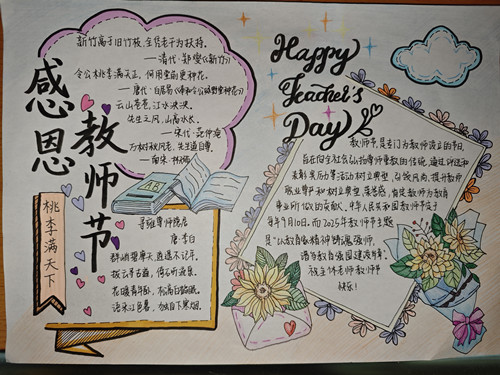 感恩
教师节
桃李满天下
新竹高于旧竹枝,全凭老干为扶持。
——清代·郑燮《新竹》
令公桃李满天下,何用堂前更种花。
——唐代·白居易《奉和令公绿野堂种花》
云山苍苍,江水泱泱,
先生之风,山高水长。
——宋代·范仲淹
寻雍尊师隐居
唐·李白
群峭碧摩天,逍遥不记年。
拨云寻古道,倚石听流泉。
花暖青牛卧,松高白鹤眠。
语来江色暮,独自下寒烟。
Happy
Teacher's
Day
教师节,是专门为教师设立的节日,
旨在向全社会弘扬尊师重教的传统,通过评选和
表彰
提升教师
职业尊
肯定教师为教育
事业所做的贡献。中华人民共和国教师节定于
每年9月10日。而2025年教师节主题
是"以教育家精神铸魂强师,
谱写教育强国建设华章"。
祝全体老师教师节
快乐!